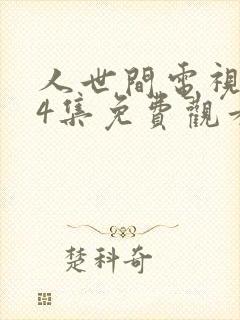 人世間電視
4集免費觀看
楚科奇